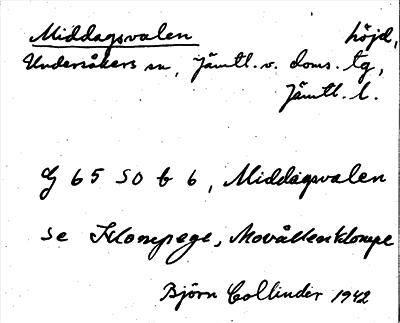 Middagsvalen höjd,
Undersåkers sn, Jämtl. v. doms. tg,
Jämtl. l.
G 65 SO b 6, Middagsvalen
se Klompege, Movållenklompe
Björn Collinder 1942